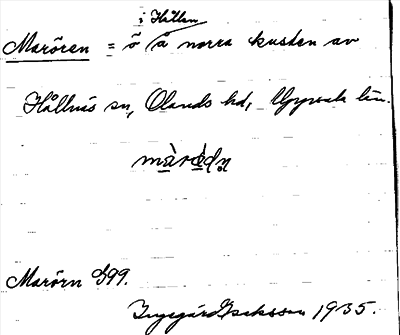 i Hållen
Marören = ö å norra kusten av
Hållnäs sn, Olands hd, Uppsala län.
Marörn G99.
Ingegärd Isaksson 1935.